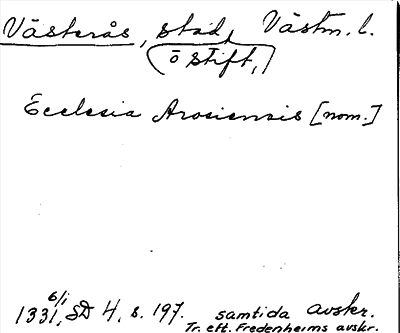 Västerås, stad, Västm. l.
(ö stift,)
Ecclesia Arosiensis [nom.]
1331, 6/1 SD 4, s. 197. samtida avskr.
Tr. eft. Fredenheims avskr.